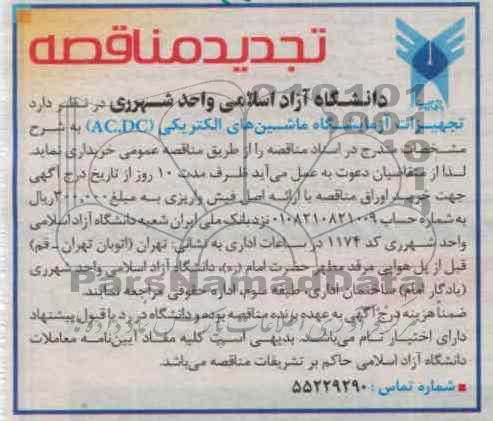 تجدید مناقصه
دانشگاه آزاد اسلامی واحد شهرری در نظر دارد
تجهیزات آزمایشگاه ماشین‌های الکتریکی (AC.DC) به شرح
مشخصات مندرج در اسناد مناقصه را از طریق مناقصه عمومی خریداری نماید.
لذا از متقاضیان دعوت به عمل می‌آید ظرف مدت ۱۰ روز از تاریخ درج آگهی
جهت خرید اوراق مناقصه با ارائه اصل فیش واریزی به مبلغ ۳۰۰,۰۰۰ ریال
به شماره حساب ۰۱۰۸۲۱۰۸۲۱۰۰۹ نزد بانک ملی ایران شعبه دانشگاه آزاد اسلامی
واحد شهرری کد ۱۱۷۴ در ساعات اداری به نشانی: تهران (اتوبان تهران ـ قم)
قبل از پل هوایی مرقد مطهر حضرت امام (ره)، دانشگاه آزاد اسلامی واحد شهرری
(یادگار امام) ساختمان اداری، طبقه سوم، اداره حقوقی مراجعه نمایند.
ضمناً هزینه درج آگهی به عهده برنده مناقصه بوده و دانشگاه در رد یا قبول پیشنهاد
دارای اختیار تام می‌باشد. بدیهی است کلیه مفاد آیین‌نامه معاملات
دانشگاه آزاد اسلامی حاکم بر تشریفات مناقصه می‌باشد.
شماره تماس: ۵۵۲۲۹۲۹۰
ParsNamadData